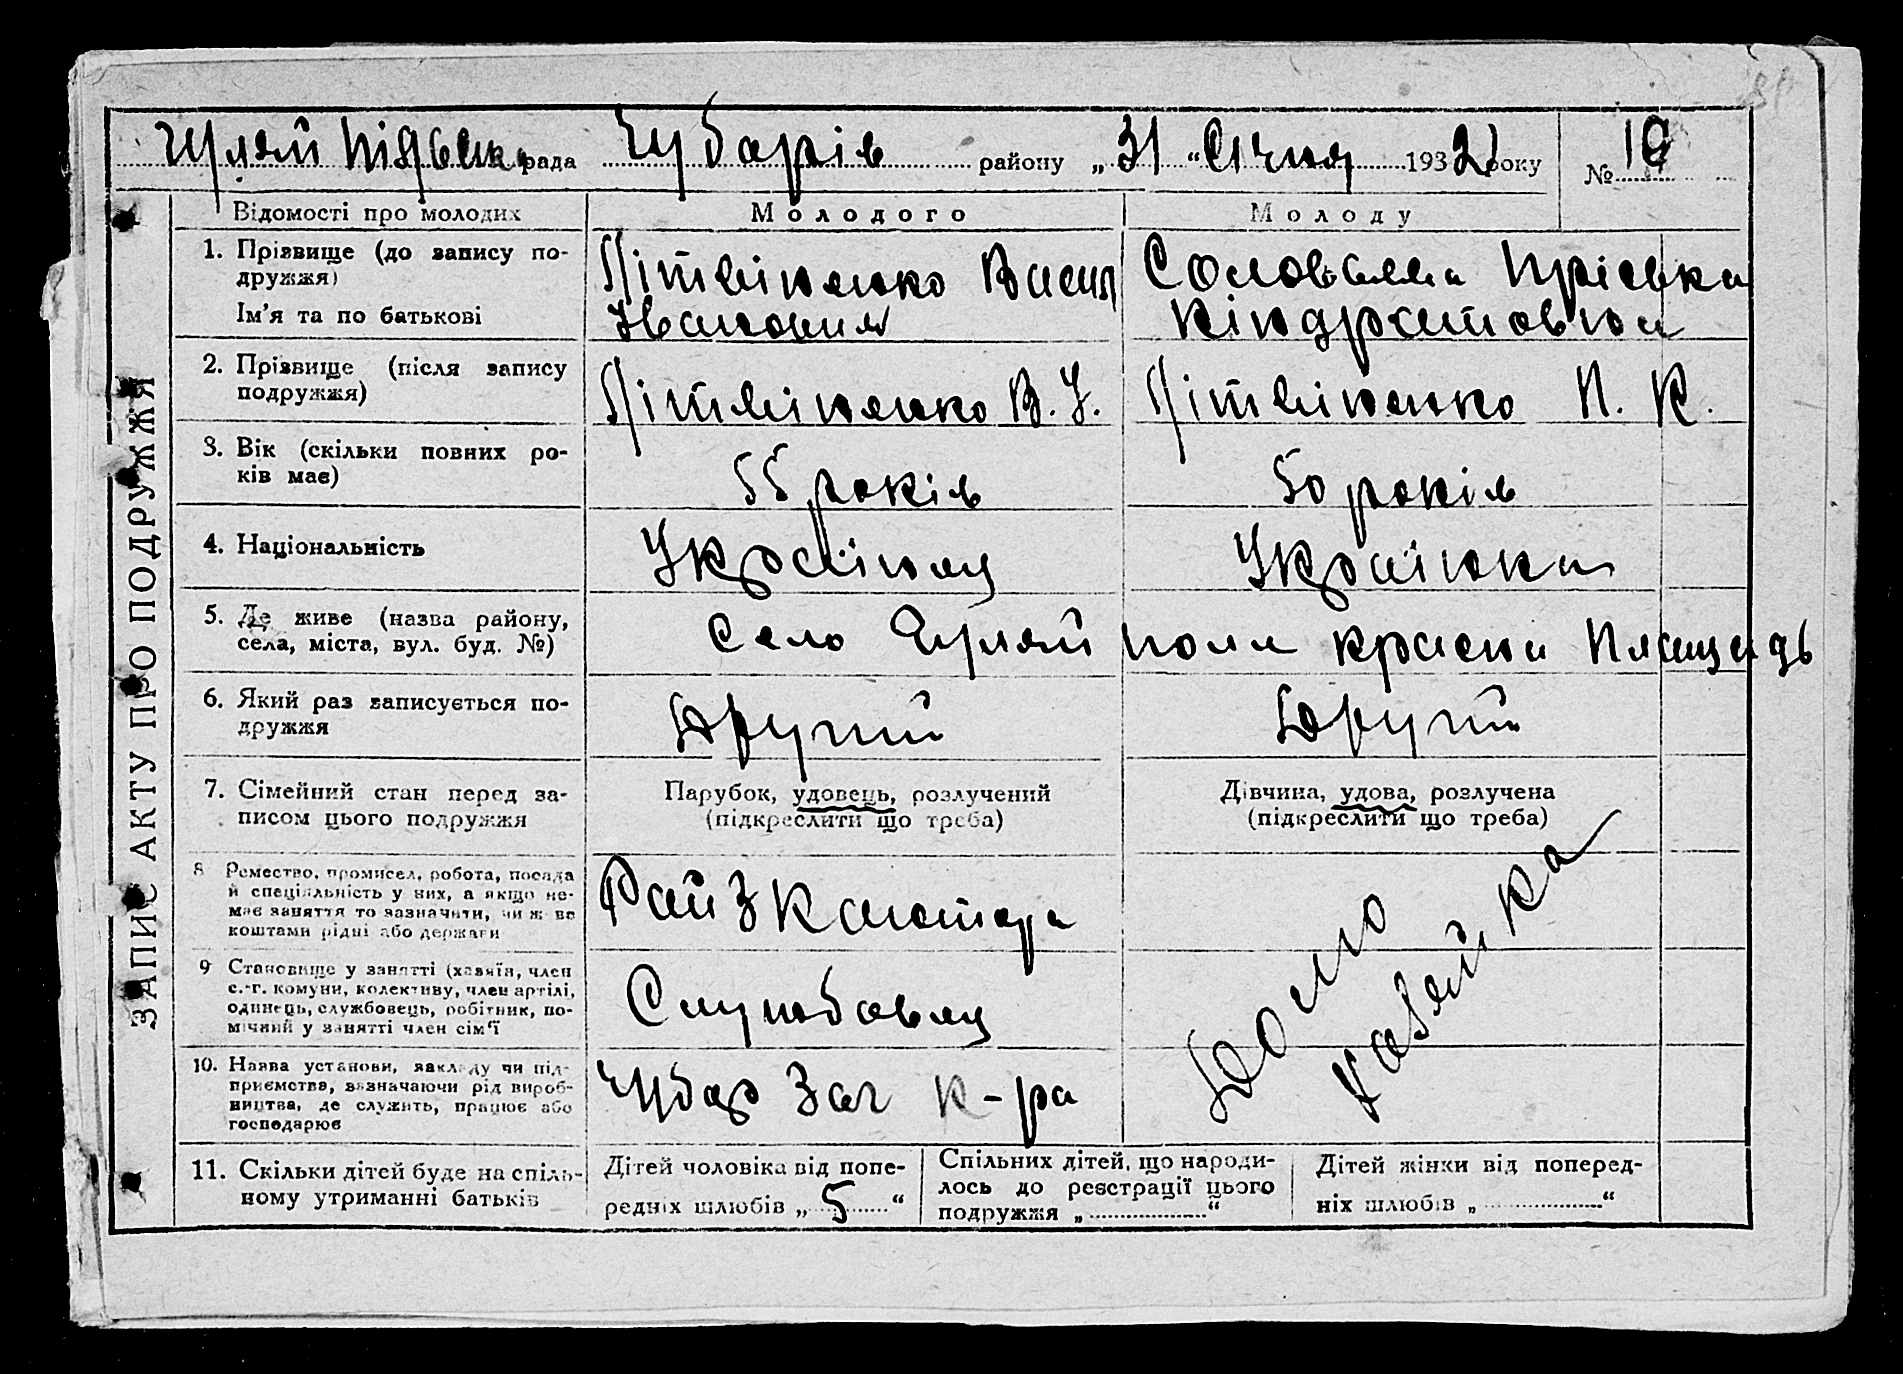 Гуляй Пільська рада Чубарів району „ 31 “ Січня 1932 року № 10
Відомості про молодих Молодого Молоду
ЗАПИС АКТУ ПРО ПОДРУЖЖЯ
1. Прізвище (до запису по-
дружжя)
Ім’я та по батькові
Літвіненко Васил
Іванович
Соловьева Пріська
Кіндратовна
2. Прізвище (після запису
подружжя)
Літвіненко В. І.
Літвіненко П. К.
3. Вік (скільки повних ро-
ків має)
55 років
50 років
4. Національність
Україниц
Українка
5. Де живе (назва району,
села, міста, вул. буд. №)
Село Гуляй поле красна площадь
6. Який раз записується по-
дружжя
Другий
Другий
7. Сімейний стан перед за-
писом цього подружжя
Парубок, удовець, розлучений
(підкреслити що треба)
Дівчина, удова, розлучена
(підкреслити що треба)
8 Ремество, промисел, робота, посада
й спеціяльність у них, а якщо не-
має заняття то зазначити, чи живе
коштами рідні або держави
Рай З Кантора
Домо
хазяйка
9 Становище у занятті (хазяїн, член
с.-г. комуни, колективу, член артілі,
одинець, службовець, робітник, по-
мічний у занятті член сім’ї
Службовец
10. Назва установи, закладу чи під-
приємства, зазначаючи рід вироб-
ництва, де служить, працює або
господарює
Чубар Заг к-ра
11. Скільки дітей буде на спіль-
ному утриманні батьків
Дітей чоловіка від попе-
редніх шлюбів „ 5 “
Спільних дітей, що народи-
лось до реєстрації цього
подружжя „ “
Дітей жінки від поперед-
ніх шлюбів „ “